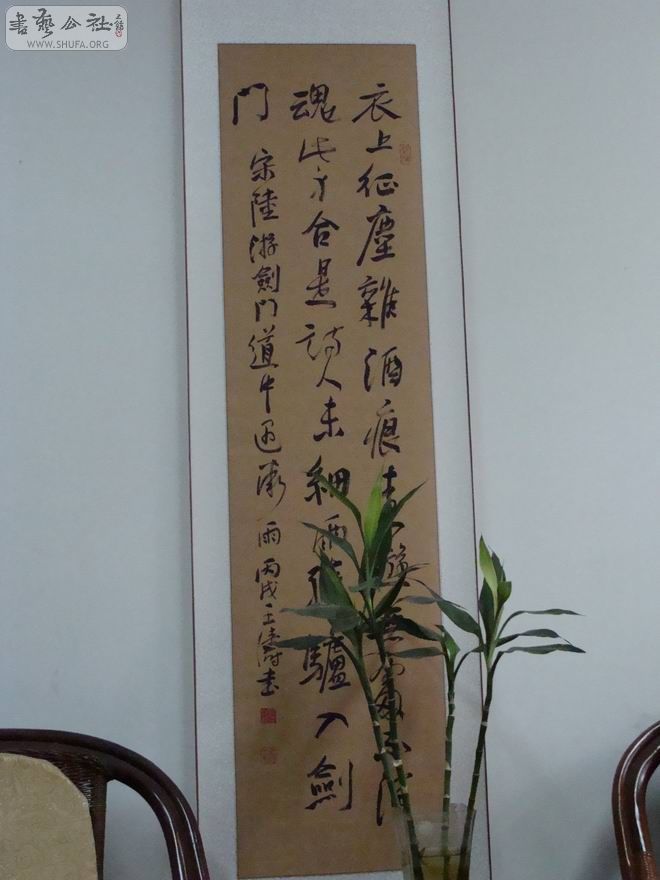 書藝公社
WWW.SHUFA.ORG
衣上征塵雜酒痕遠遊無處不消
魂此身合是詩人未細雨騎驢入劍
門
宋陸游劍門道中遇微雨 丙戌王濤書